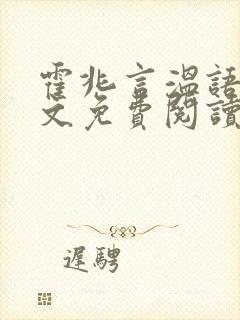 霍兆言溫語
文免費閱讀
遲騁